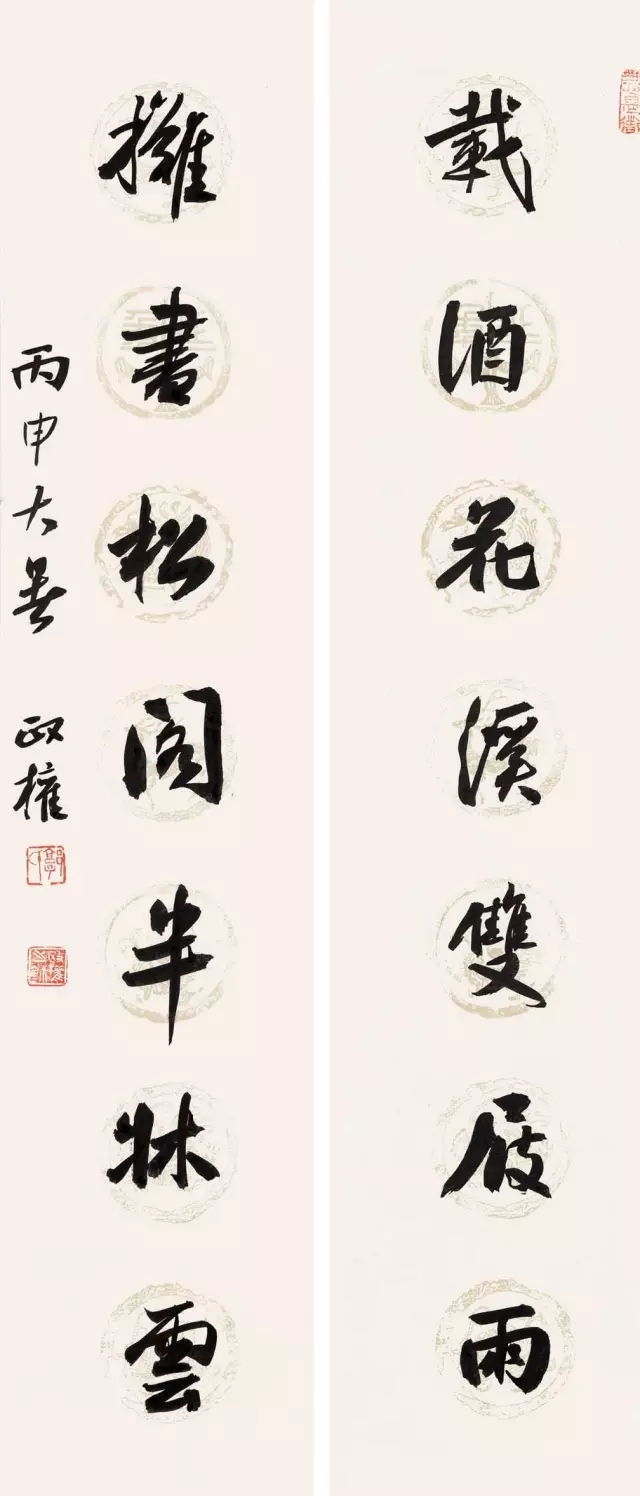 載酒花溪雙屐雨
擁書松閣半牀雲
丙申大暑 政權